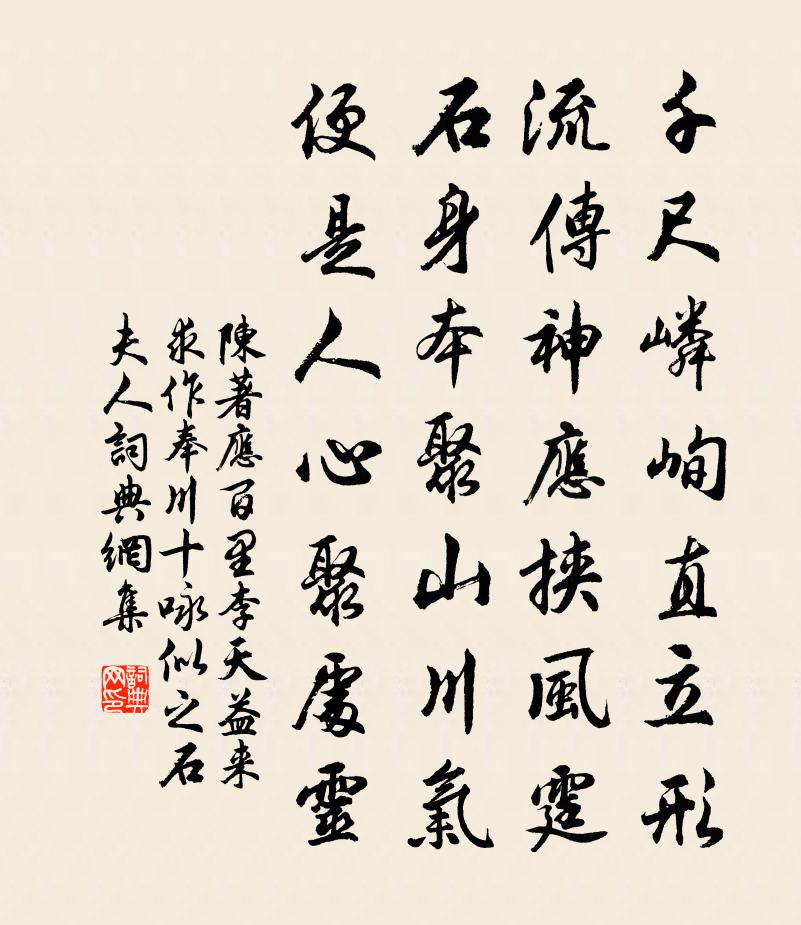 千尺嶙峋直立形
流傳神應挾風霆
石身本聚山川氣
便是人心聚處靈
陳著應百里李天益来
求作奉川十咏似之石
夫人詞典網集
詞典網印